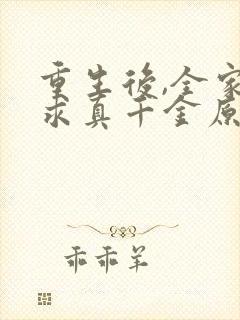 重生後,全家
求真千金原
乖乖羊